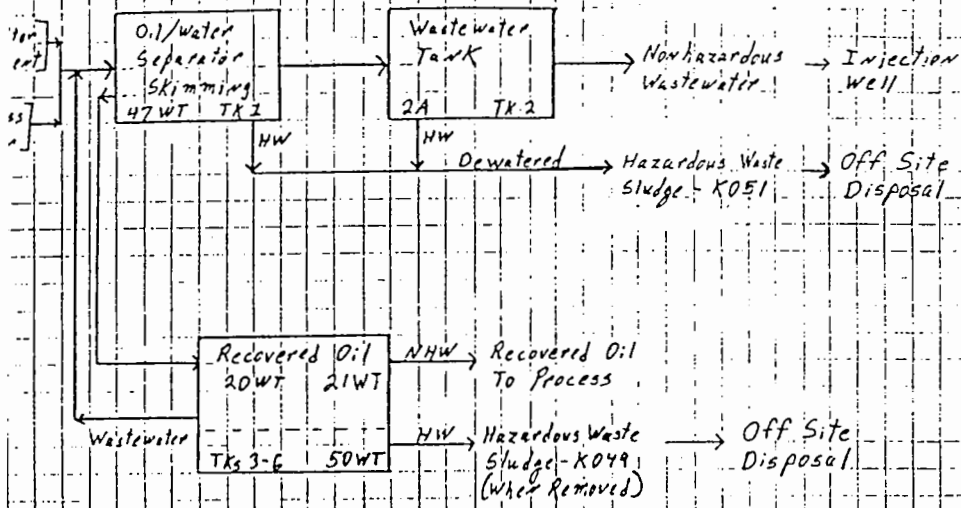 Oil/water
Separator
Skimming
47WT TK1
Wastewater
Tank
2A TK.2
Nonhazardous
Wastewater
Injection
Well
HW
HW
Dewatered
Hazardous Waste
Sludge - K051
Off Site
Disposal
Recovered Oil
20WT 21WT
TKs 3-6 50WT
NHW
Recovered Oil
To Process
Wastewater
HW
Hazardous Waste
Sludge - K049
(When Removed)
Off Site
Disposal